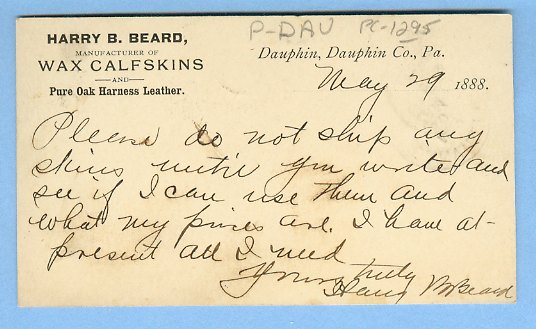 P-DAU PC-1295
HARRY B. BEARD,
MANUFACTURER OF
WAX CALFSKINS
—AND—
Pure Oak Harness Leather.
Dauphin, Dauphin Co., Pa.
May 29 1888.
Please do not ship any
skins until you write and
see if I can use them and
what my prices are. I have at-
present all I need
Yours truly
Harry B Beard